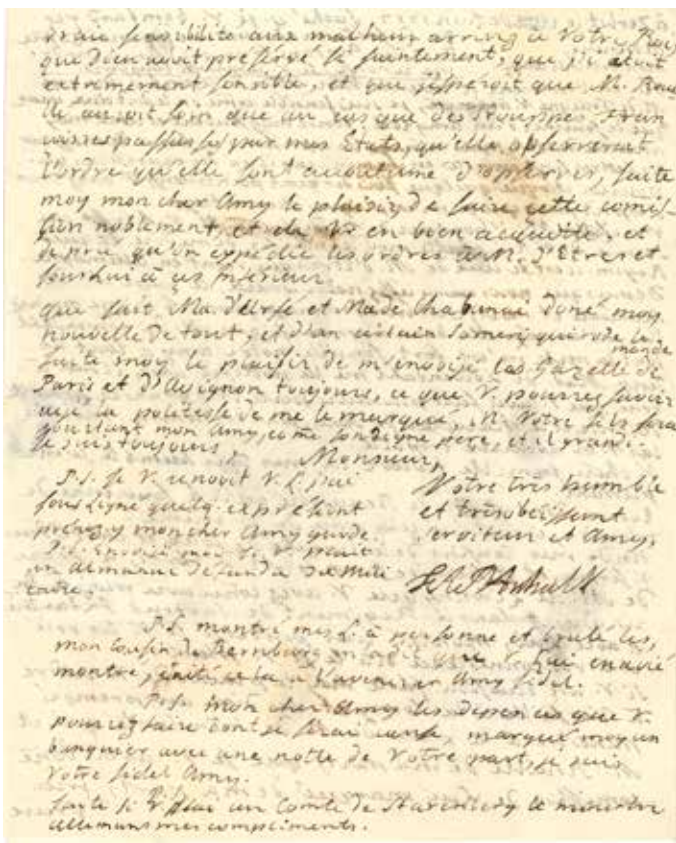 vraie sensibilité aux malheur arrivé à Votre Roy,
que Dieu avoit preservé si saintement, que j'i étoit
extrémement sensible, et que j'esperoit que M. Rou
lé auroit soin que au cas que des trouppes Fran
coises passasse par mes Etats, qu'elle observerait
l'ordre qu'elle sont acoutumé d'observer, faite
moy mon cher Amy le plaisir de faire cette comis-
sion noblement, et de V. en bien acquitté, et
de prié qu'on expédie les ordres à M. d'Etrees et
à ces inferieur
que fait Ma. d'Urfé et Made Chabanai doné moy
nouvelle de tout, et d'un certain qui rode le
monde
faite moy le plaisir de m'envoijé las Gazette de
Paris et d'Avignon toujours, ce que V. pourres savoir
ujé la politesse de me le marqué, M. Votre fils sera
pourtant mon Amy, come son digne pere, et il grandi.
Je suis toujours,
Monsieur,
P.S. Je V. V.
quelq.
prenez y mon cher Amy garde
P.S. Envoijé moi S. V. plait
un almanac Mili
taire.
Votre très humble
et très obeissant
serviteur et Amy,
P.S. montré mes L. à personne et brulé les,
mon Cousin de Bernbourg que V. lui envoié
montré, évité cela à l'avenir Amy fidel.
P.S. mon cher Amy les depences que V.
pourrez faire dont je serai cause, marqué moy un
banquier avec une notte de Votre part, je suis
Votre fidel Amy.
faite s'il V. plai au Comte de Starenberg le ministre
allemans mes compliments.